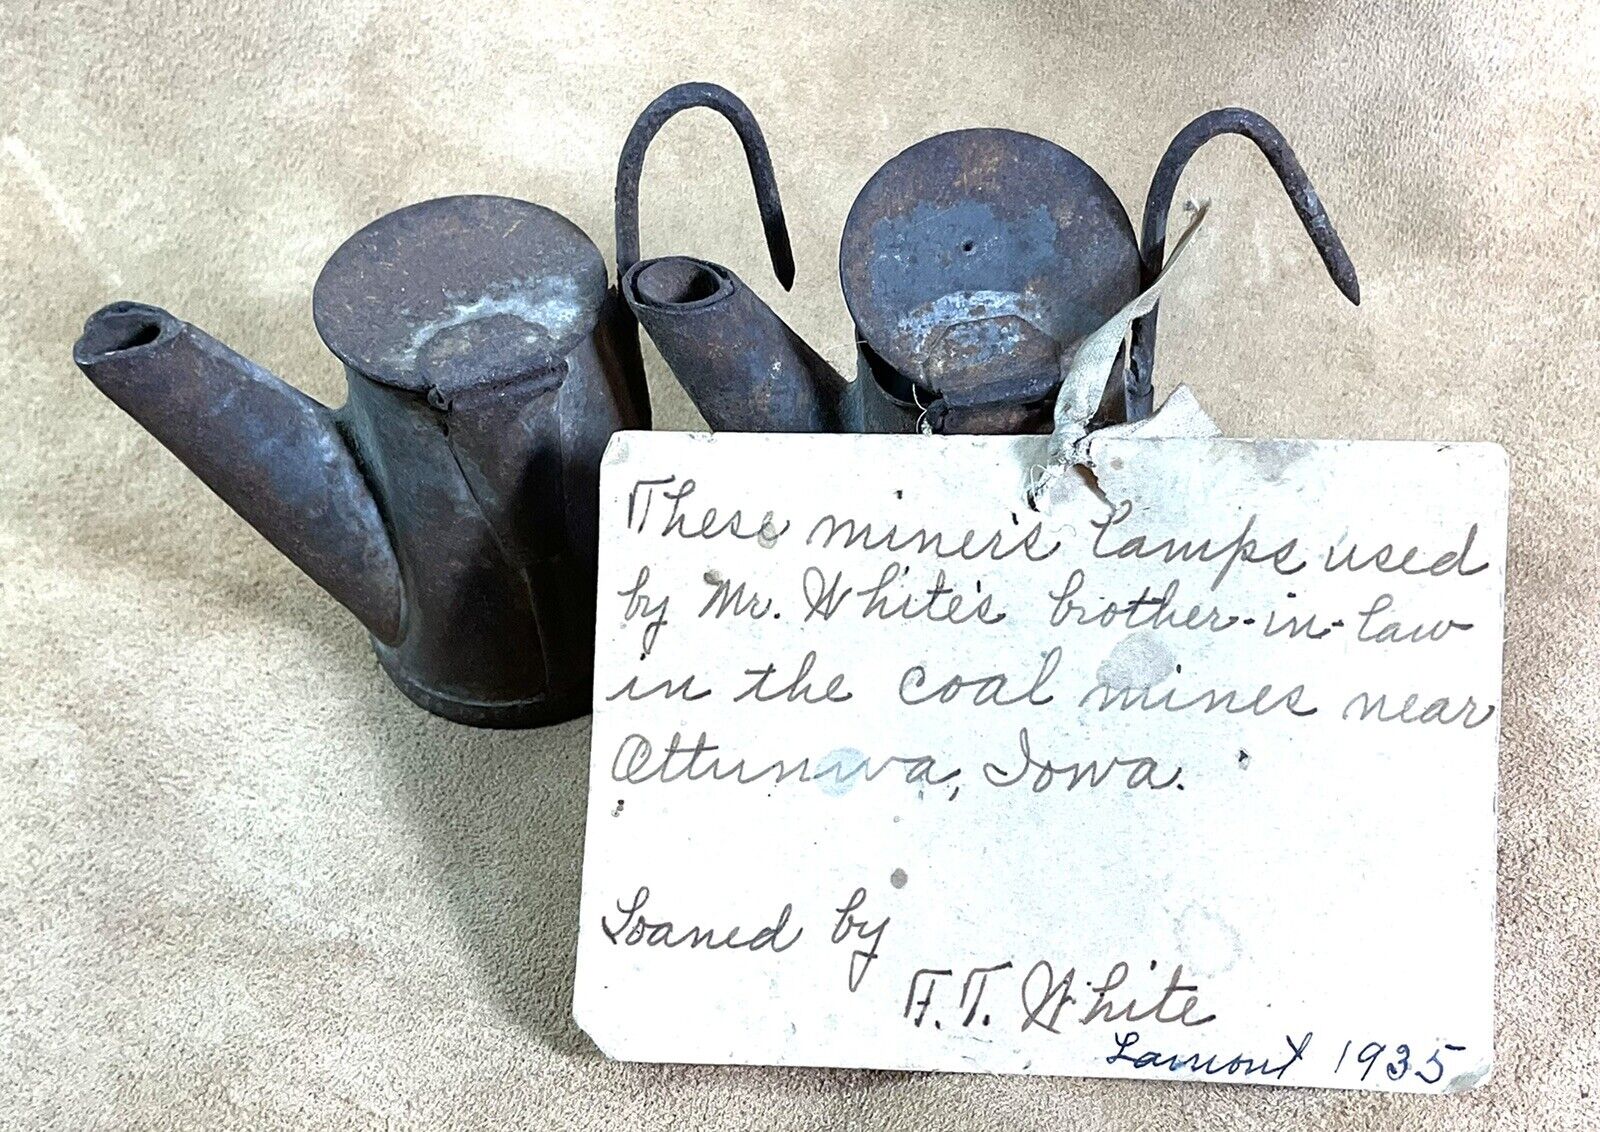 These miner's lamps used
by Mr. White's brother-in-law
in the coal mines near
Ottumwa, Iowa.
Loaned by
F.T. White
Lamont 1935